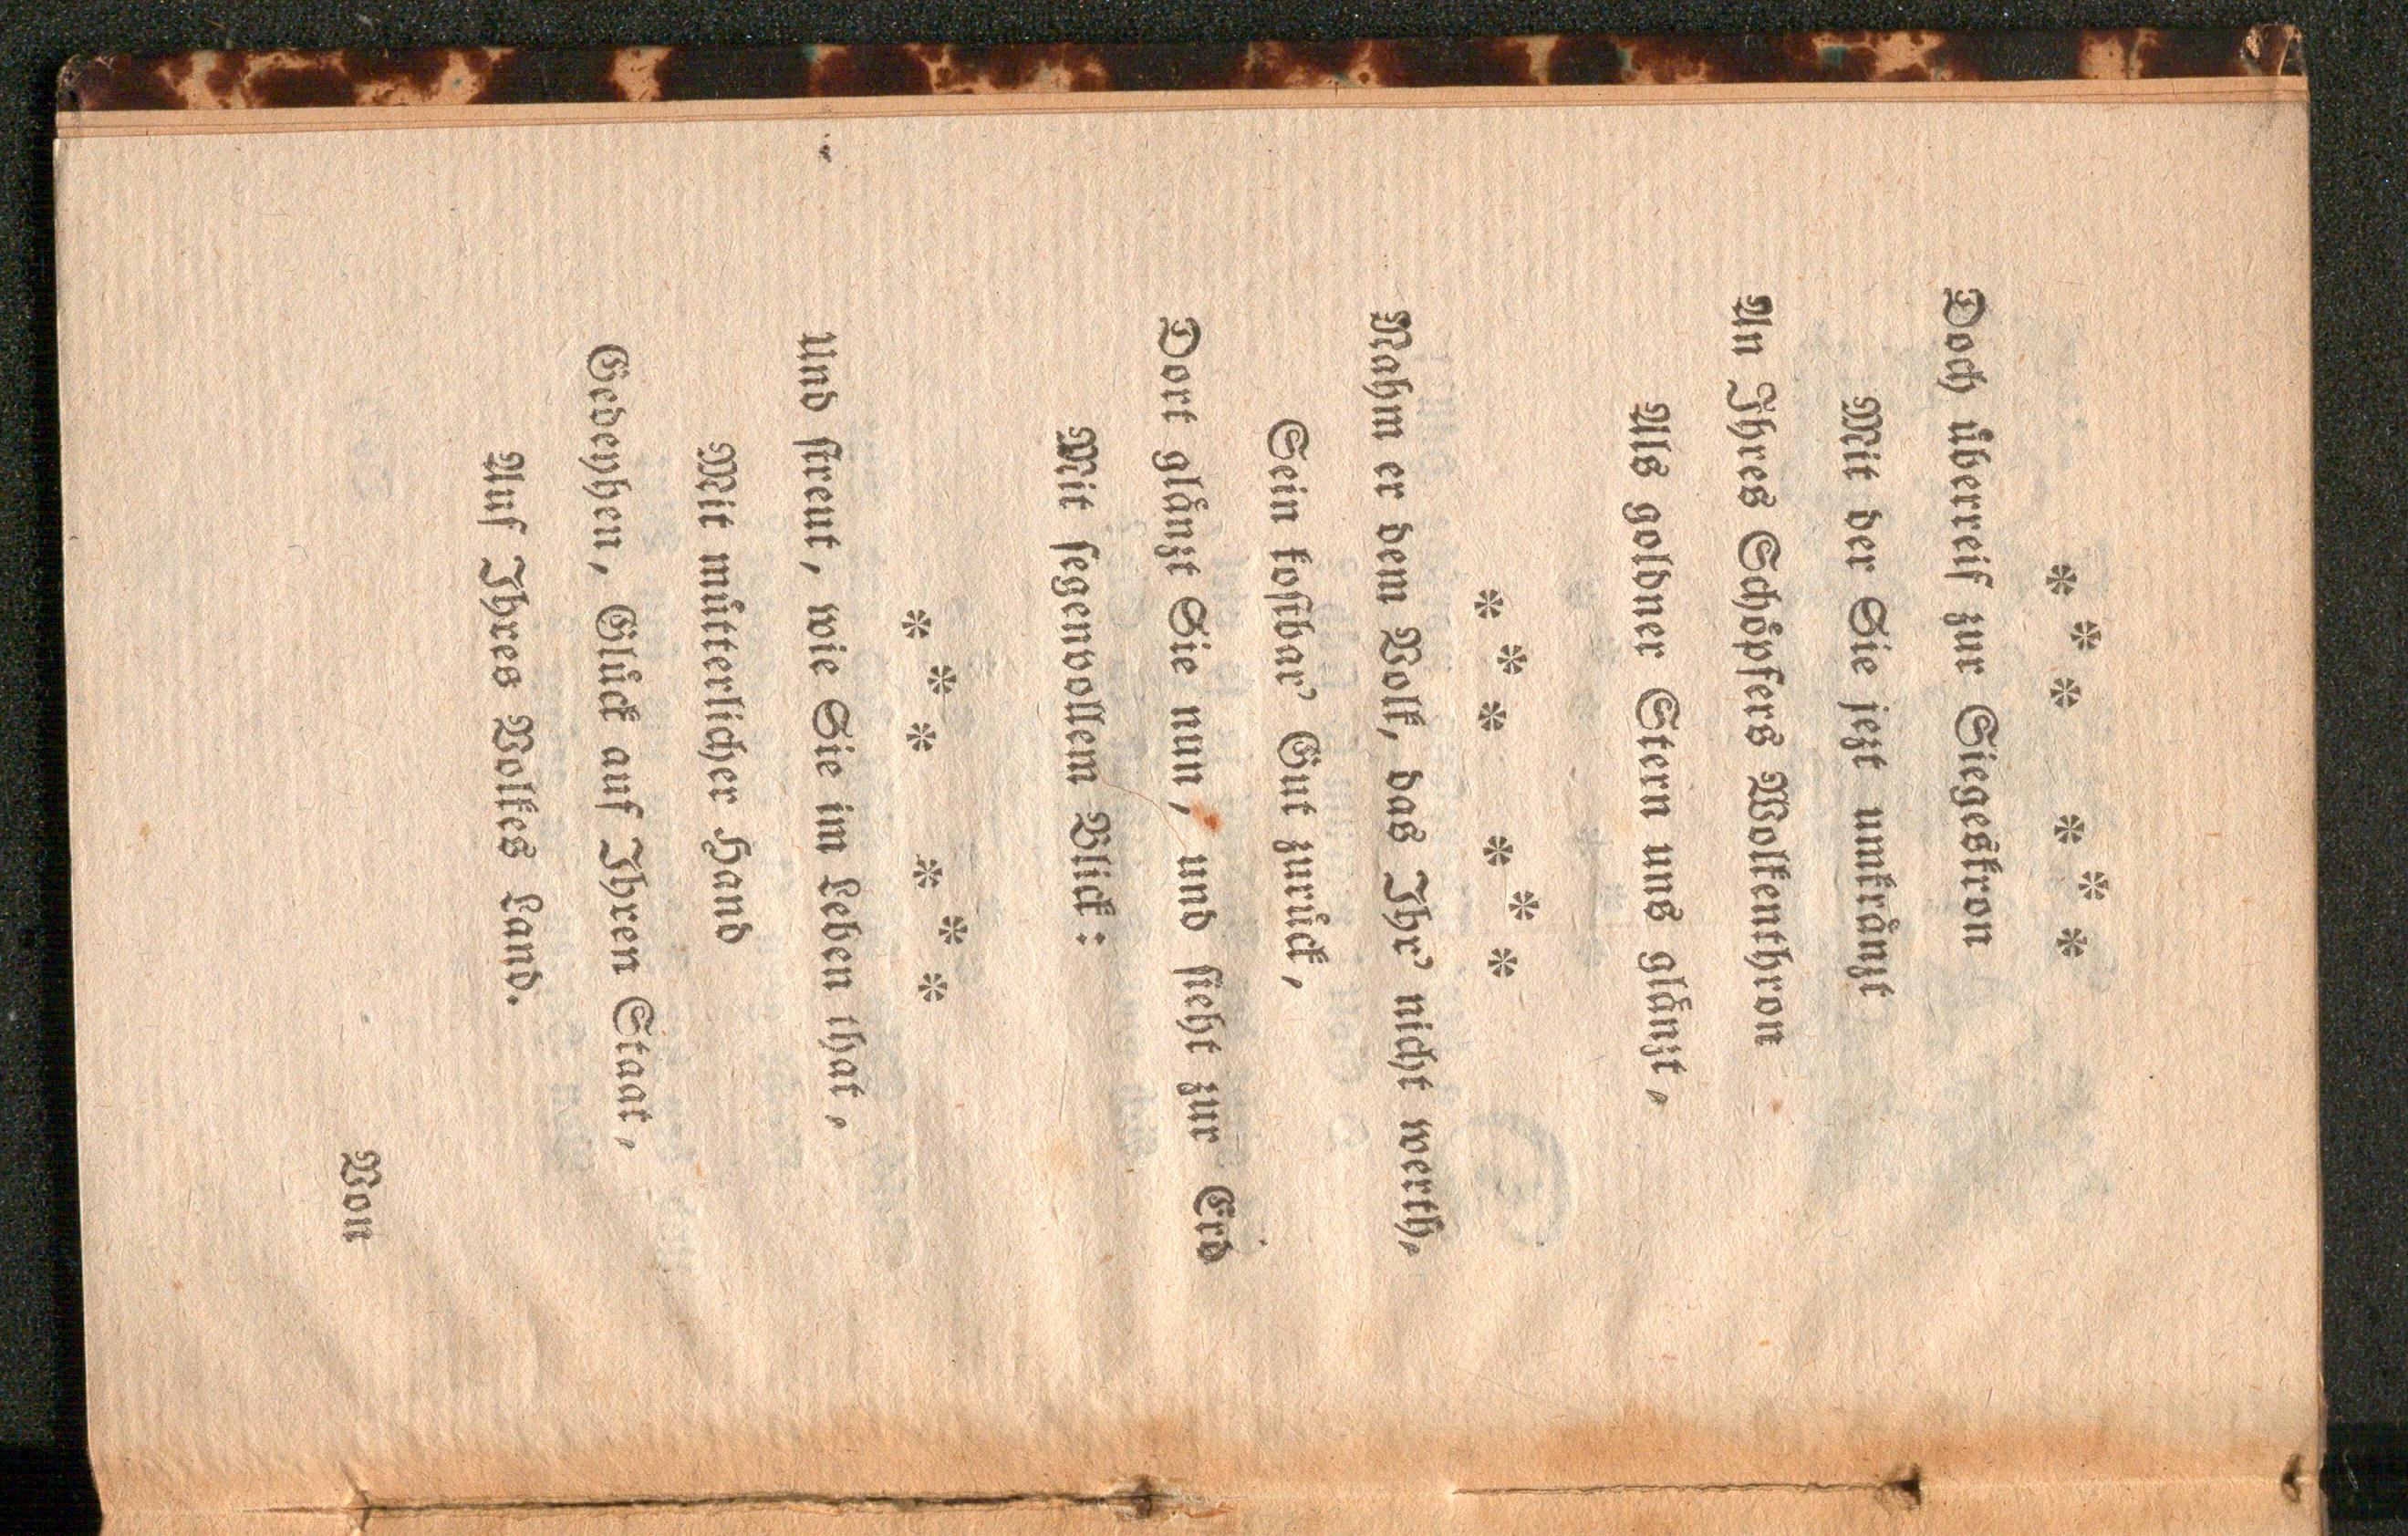 * * * * * *
Doch überreif zur Siegeskron
Mit der Sie jezt umkränzt
An Ihres Schöpfers Wolkenthron
Als goldner Stern uns glänzt,
* * * * * *
Nahm er dem Volk, das Ihr' nicht werth,
Sein kostbar' Gut zurück,
Dort glänzt Sie nun, und sieht zur Erd
Mit segenvollem Blick:
* * * * * *
Und streut, wie Sie im Leben that,
Mit mütterlicher Hand
Gedeyhen, Glück auf Ihren Staat,
Auf Ihres Volkes Land.
Von